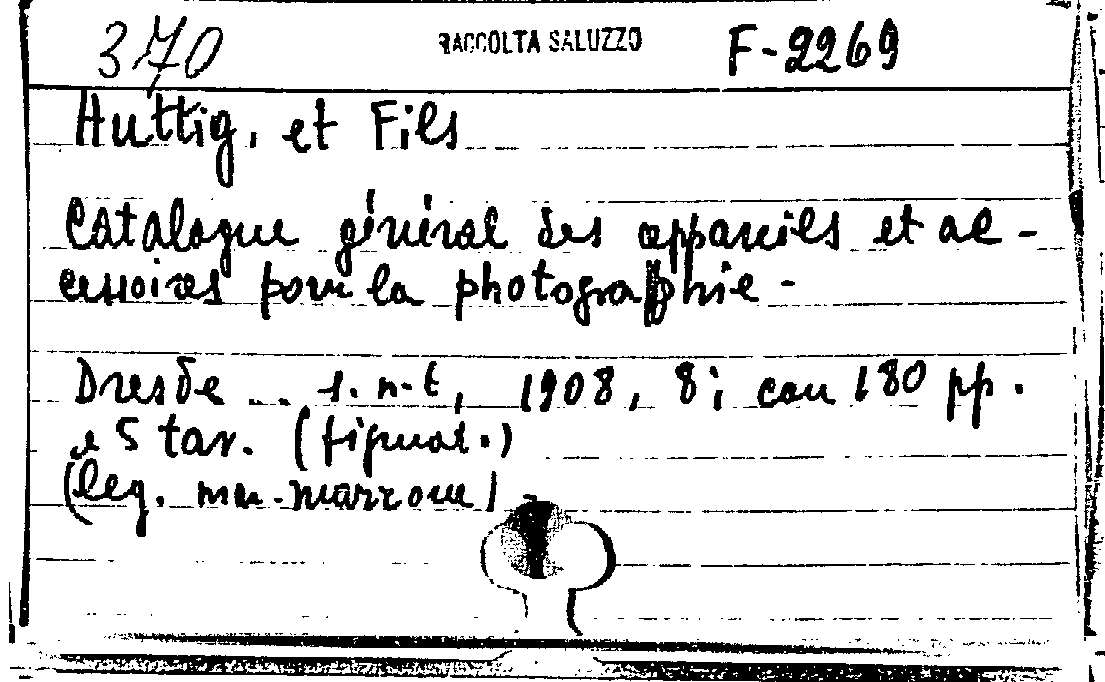 370 RACCOLTA SALUZZO F-2269
Huttig, et Fils
Catalogue général des appareils et ac-
cessoires pour la photographie -
Dresde .. s. n. t, 1908, 8; con 180 pp.
e 5 tav. (figurat.)
(leg. marrone)